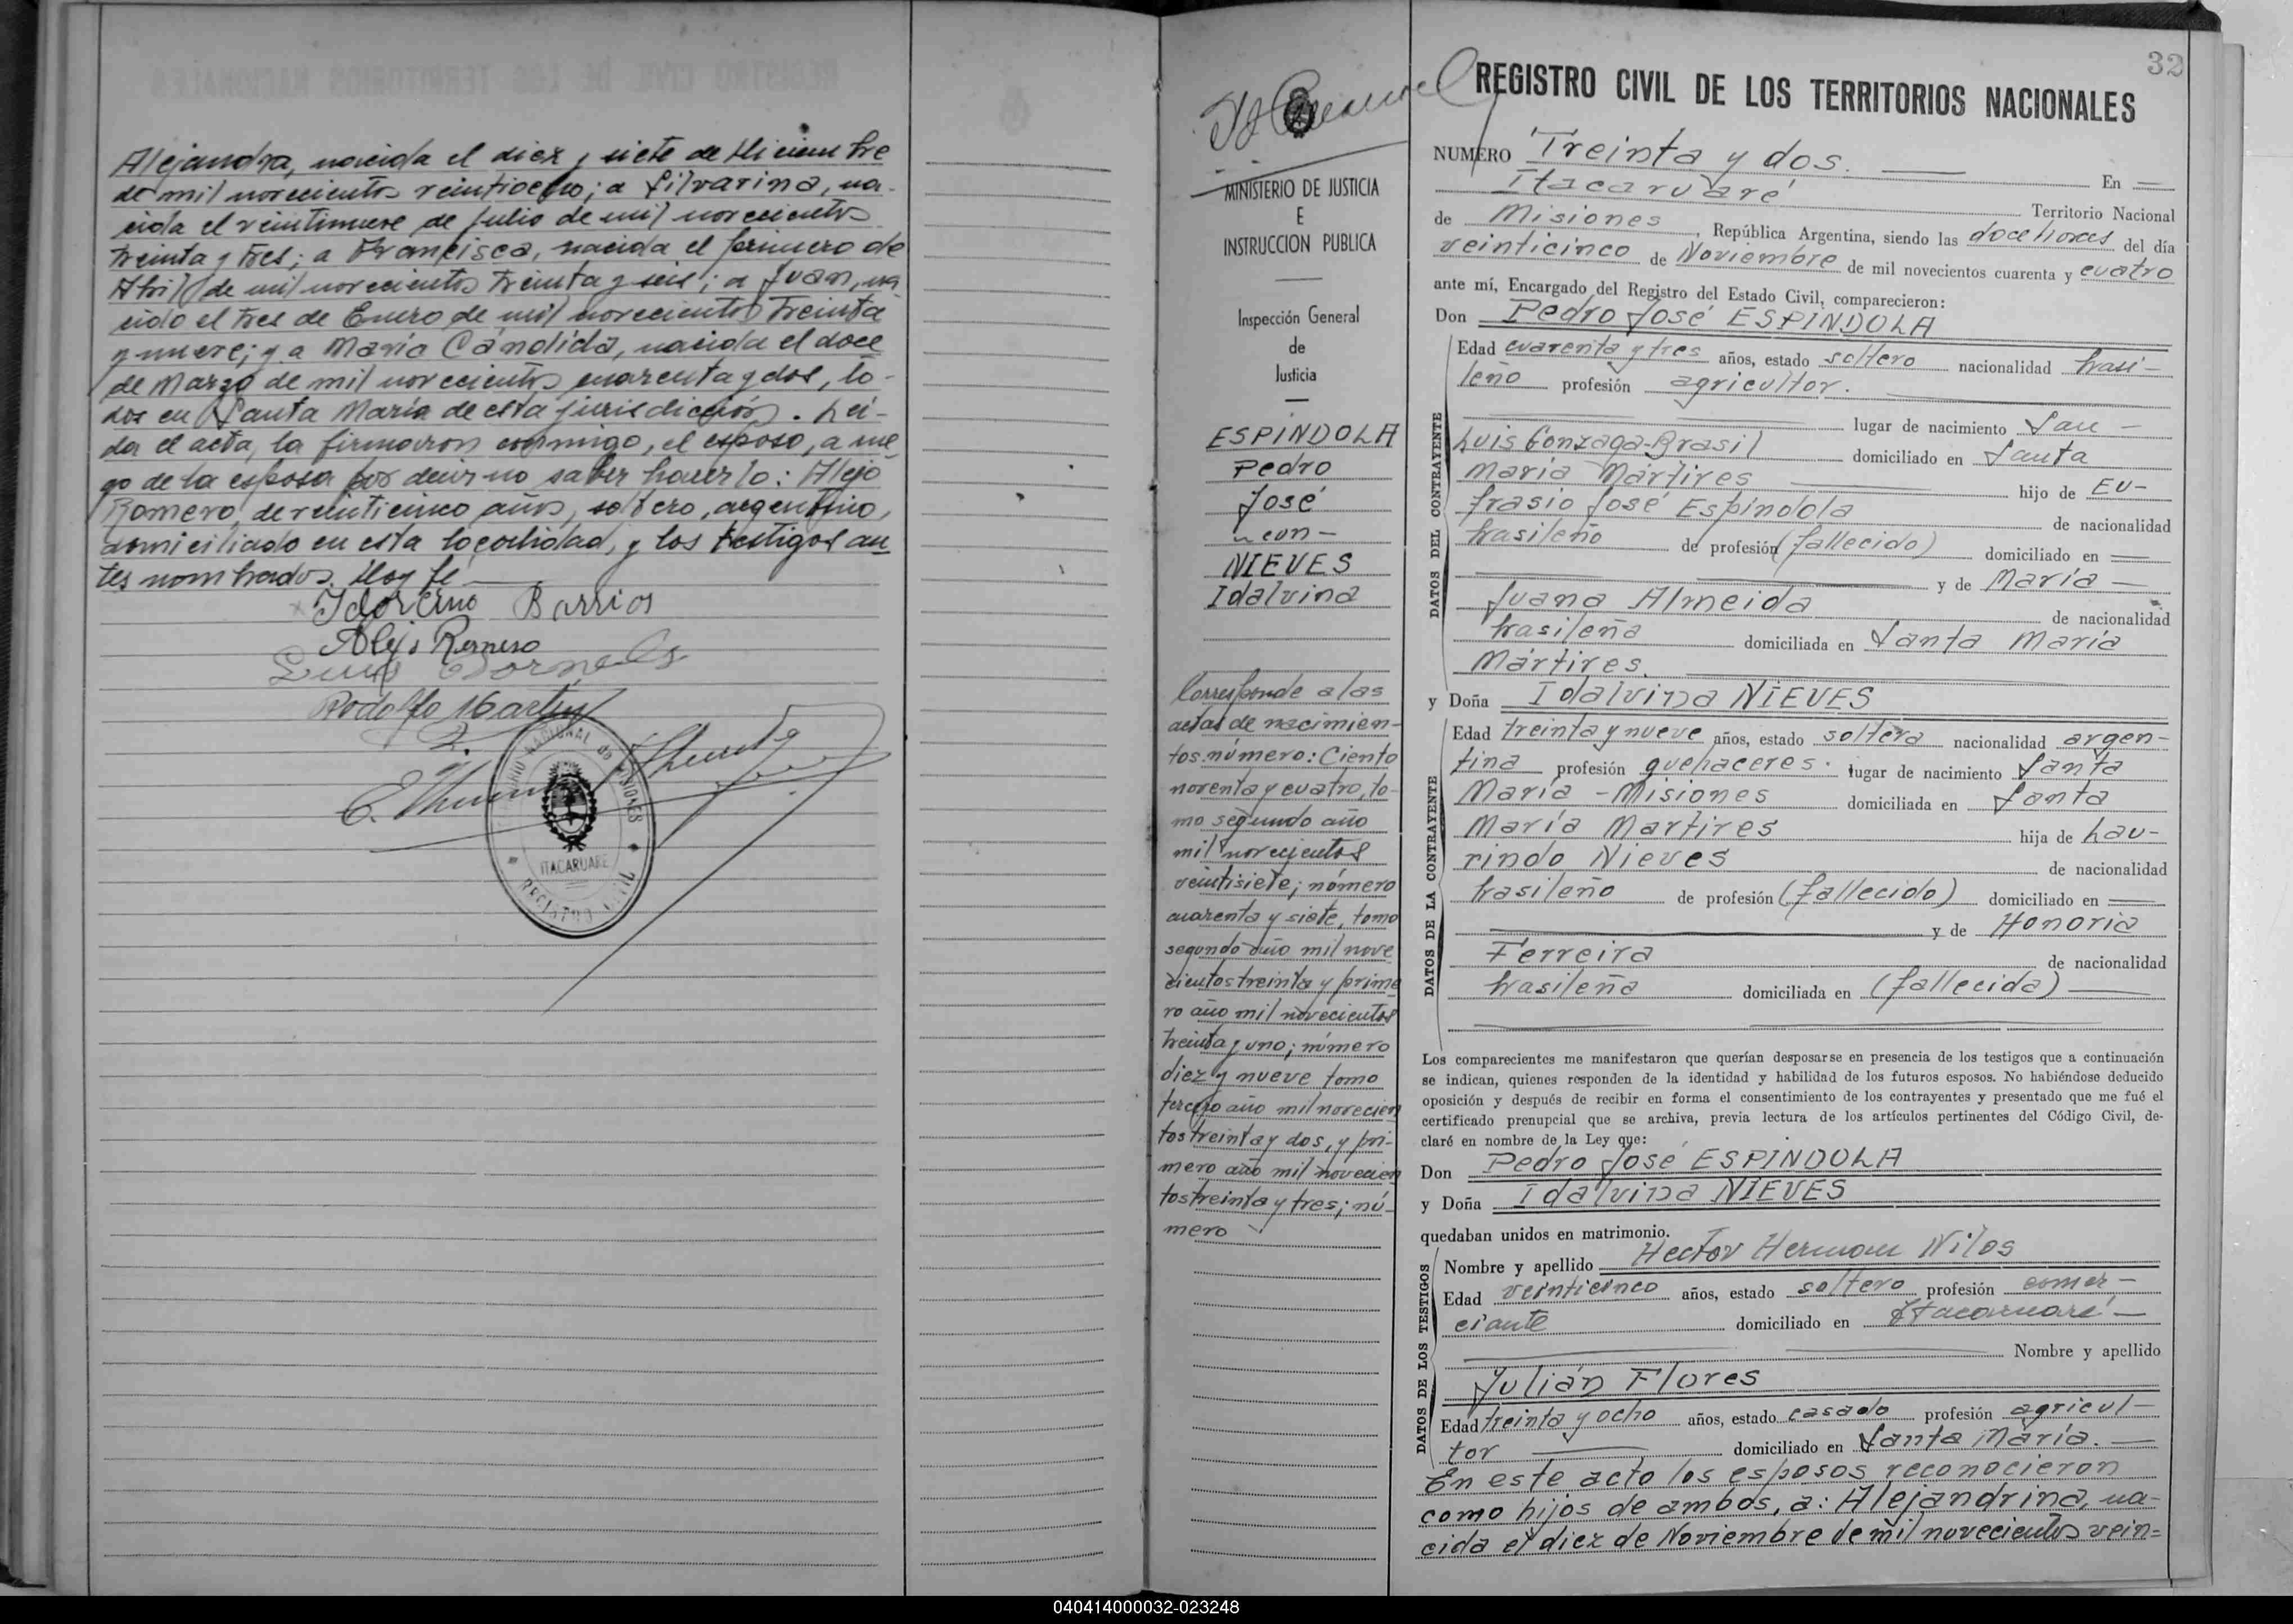 Alejandra, nacida el diez y siete de Diciembre
de mil novecientos veintiocho; a Silvarina, na-
cida el veintinueve de Julio de mil novecientos
treinta y tres; a Francisca, nacida el primero de
Abril de mil novecientos treinta y seis; a Juan, na-
cido el tres de Enero de mil novecientos treinta
y nueve; y a María Cándida, nacida el doce
de Marzo de mil novecientos cuarenta y dos, to-
dos en Santa María de esta jurisdicción. Leí-
da el acta, la firmaron conmigo, el esposo, a rue
go de la esposa por decir no saber hacerlo: Alejo
Romero, de veinticinco años, soltero, argentino,
domiciliado en esta localidad, y los testigos an
tes nombrados. Doy fe
Barrios
Alejo Romero
Luis Dornels
Rodolfo Martin
ITACARUARE
REGISTRO CIVIL
MINISTERIO DE JUSTICIA
E
INSTRUCCION PUBLICA
Inspección General
de
Justicia
ESPINDOLA
Pedro
José
con -
NIEVES
Idalvina
Corresponde a las
actas de nacimien-
tos número: Ciento
noventa y cuatro, to-
mo segundo año
mil novecientos
veintisiete; número
cuarenta y siete, tomo
segundo año mil nove
cientos treinta y prime
ro año mil novecientos
treinta y uno; número
diez y nueve tomo
tercero año mil novecien
tos treinta y dos, y pri-
mero año mil novecien
tos treinta y tres; nú-
mero
32
REGISTRO CIVIL DE LOS TERRITORIOS NACIONALES
NUMERO Treinta y dos. En
Itacaruaré Territorio Nacional
de Misiones, República Argentina, siendo las doce horas del día
veinticinco de Noviembre de mil novecientos cuarenta y cuatro
ante mí, Encargado del Registro del Estado Civil, comparecieron:
Don Pedro José ESPINDOLA
DATOS DEL CONTRAYENTE
Edad cuarenta y tres años, estado soltero nacionalidad brasi-
leño profesión agricultor.
lugar de nacimiento San -
Luis Gonzaga-Brasil domiciliado en Santa
María Mártires hijo de Eu-
frasio José Espíndola de nacionalidad
brasileño de profesión (fallecido) domiciliado en
y de María -
Juana Almeida de nacionalidad
brasileña domiciliada en Santa María
Mártires.
y Doña Idalvina NIEVES
DATOS DE LA CONTRAYENTE
Edad treinta y nueve años, estado soltera nacionalidad argen-
tina profesión quehaceres. lugar de nacimiento Santa
María - Misiones domiciliada en Santa
María Martires hija de Lau-
rindo Nieves de nacionalidad
brasileño de profesión (fallecido) domiciliado en
y de Honoria
Ferreira de nacionalidad
brasileña domiciliada en (fallecida)
Los comparecientes me manifestaron que querían desposarse en presencia de los testigos que a continuación
se indican, quienes responden de la identidad y habilidad de los futuros esposos. No habiéndose deducido
oposición y después de recibir en forma el consentimiento de los contrayentes y presentado que me fué el
certificado prenupcial que se archiva, previa lectura de los artículos pertinentes del Código Civil, de-
claré en nombre de la Ley que:
Don Pedro José ESPINDOLA
y Doña Idalvina NIEVES
quedaban unidos en matrimonio.
DATOS DE LOS TESTIGOS
Nombre y apellido Hector Herman Nilos
Edad veinticinco años, estado soltero profesión comer-
ciante domiciliado en Itacaruaré -
Nombre y apellido
Julián Flores
Edad treinta y ocho años, estado casado profesión agricul-
tor domiciliado en Santa María. -
En este acto los esposos reconocieron
como hijos de ambos, a: Alejandrina, na-
cida el diez de Noviembre de mil novecientos vein=
040414000032-023248